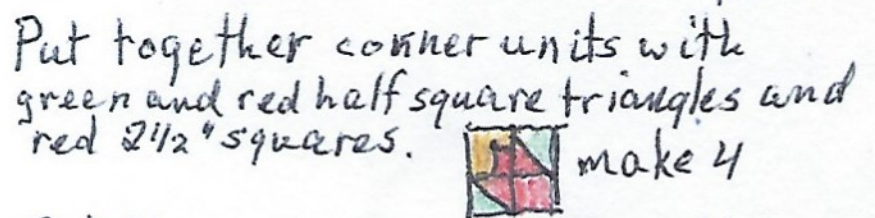 Put together corner units with
green and red half square triangles and
red 2 1/2" squares. make 4